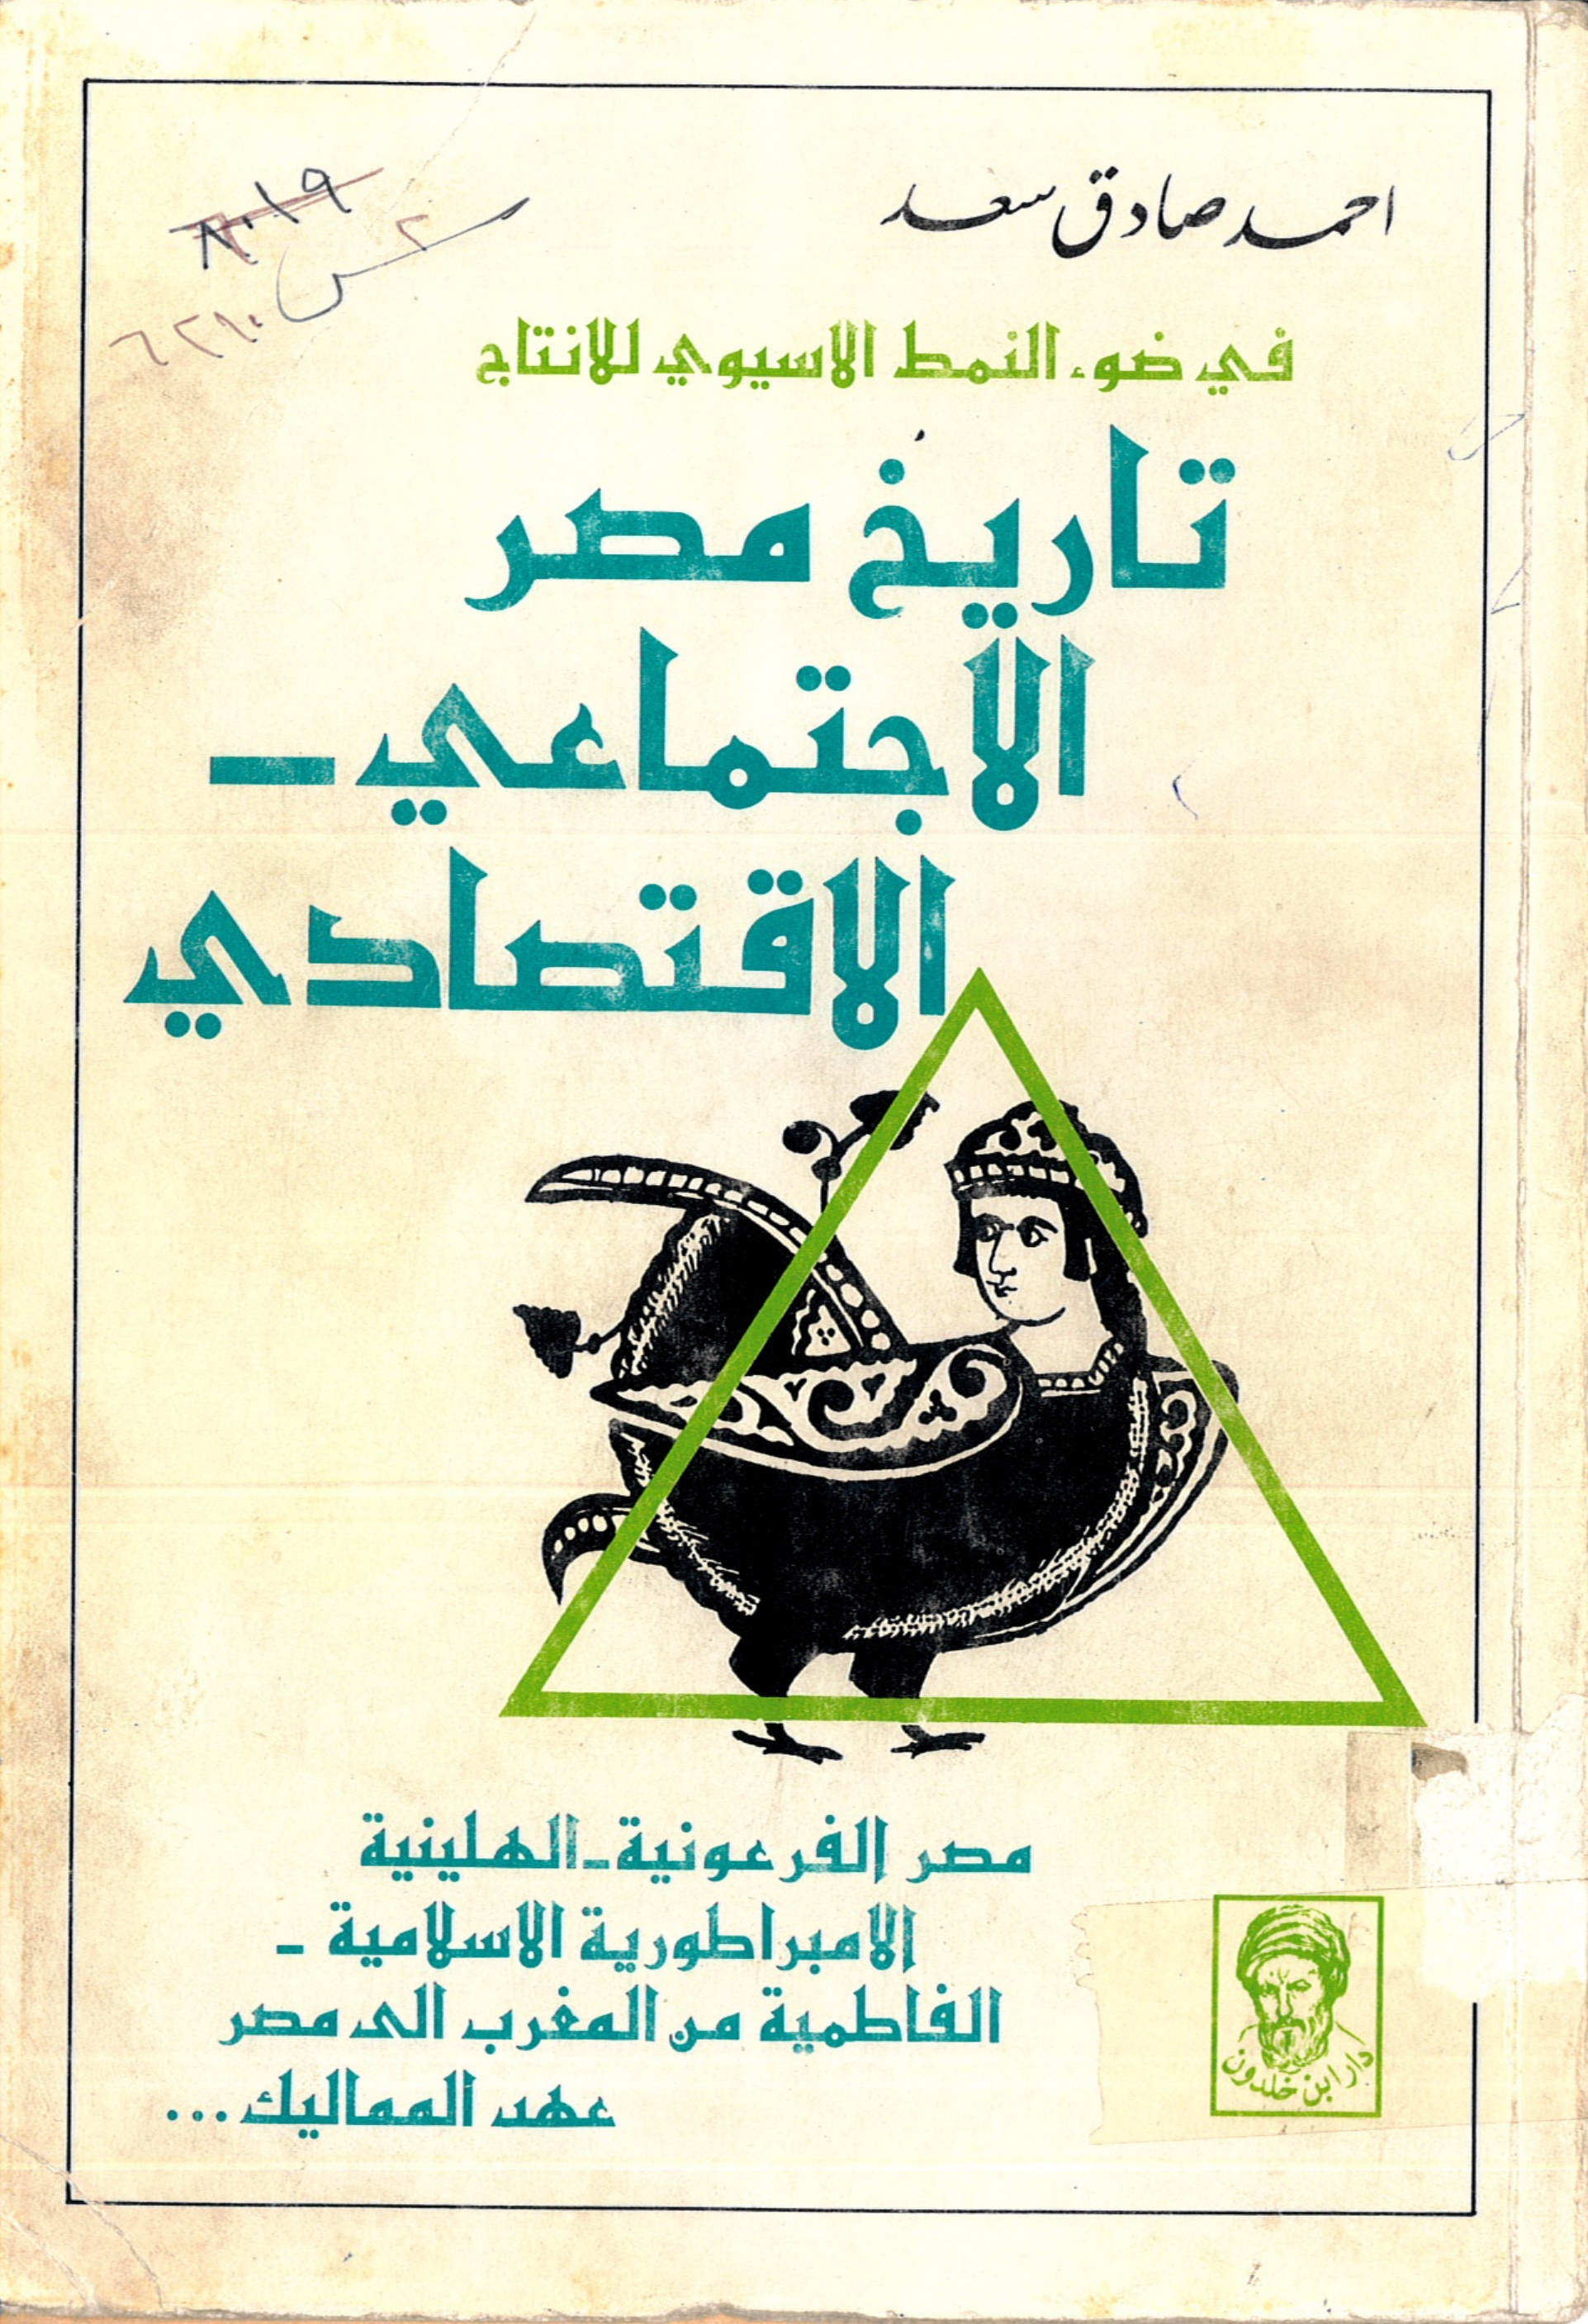 احمد صادق سعد
٨٠١٩
في ضوء النمط الاسيوي للانتاج
تاريخ مصر
الاجتماعي -
الاقتصادي
مصر الفرعونية - الهلينية
الامبراطورية الاسلامية -
الفاطمية من المغرب الى مصر
عهد المماليك ...
دار ابن خلدون